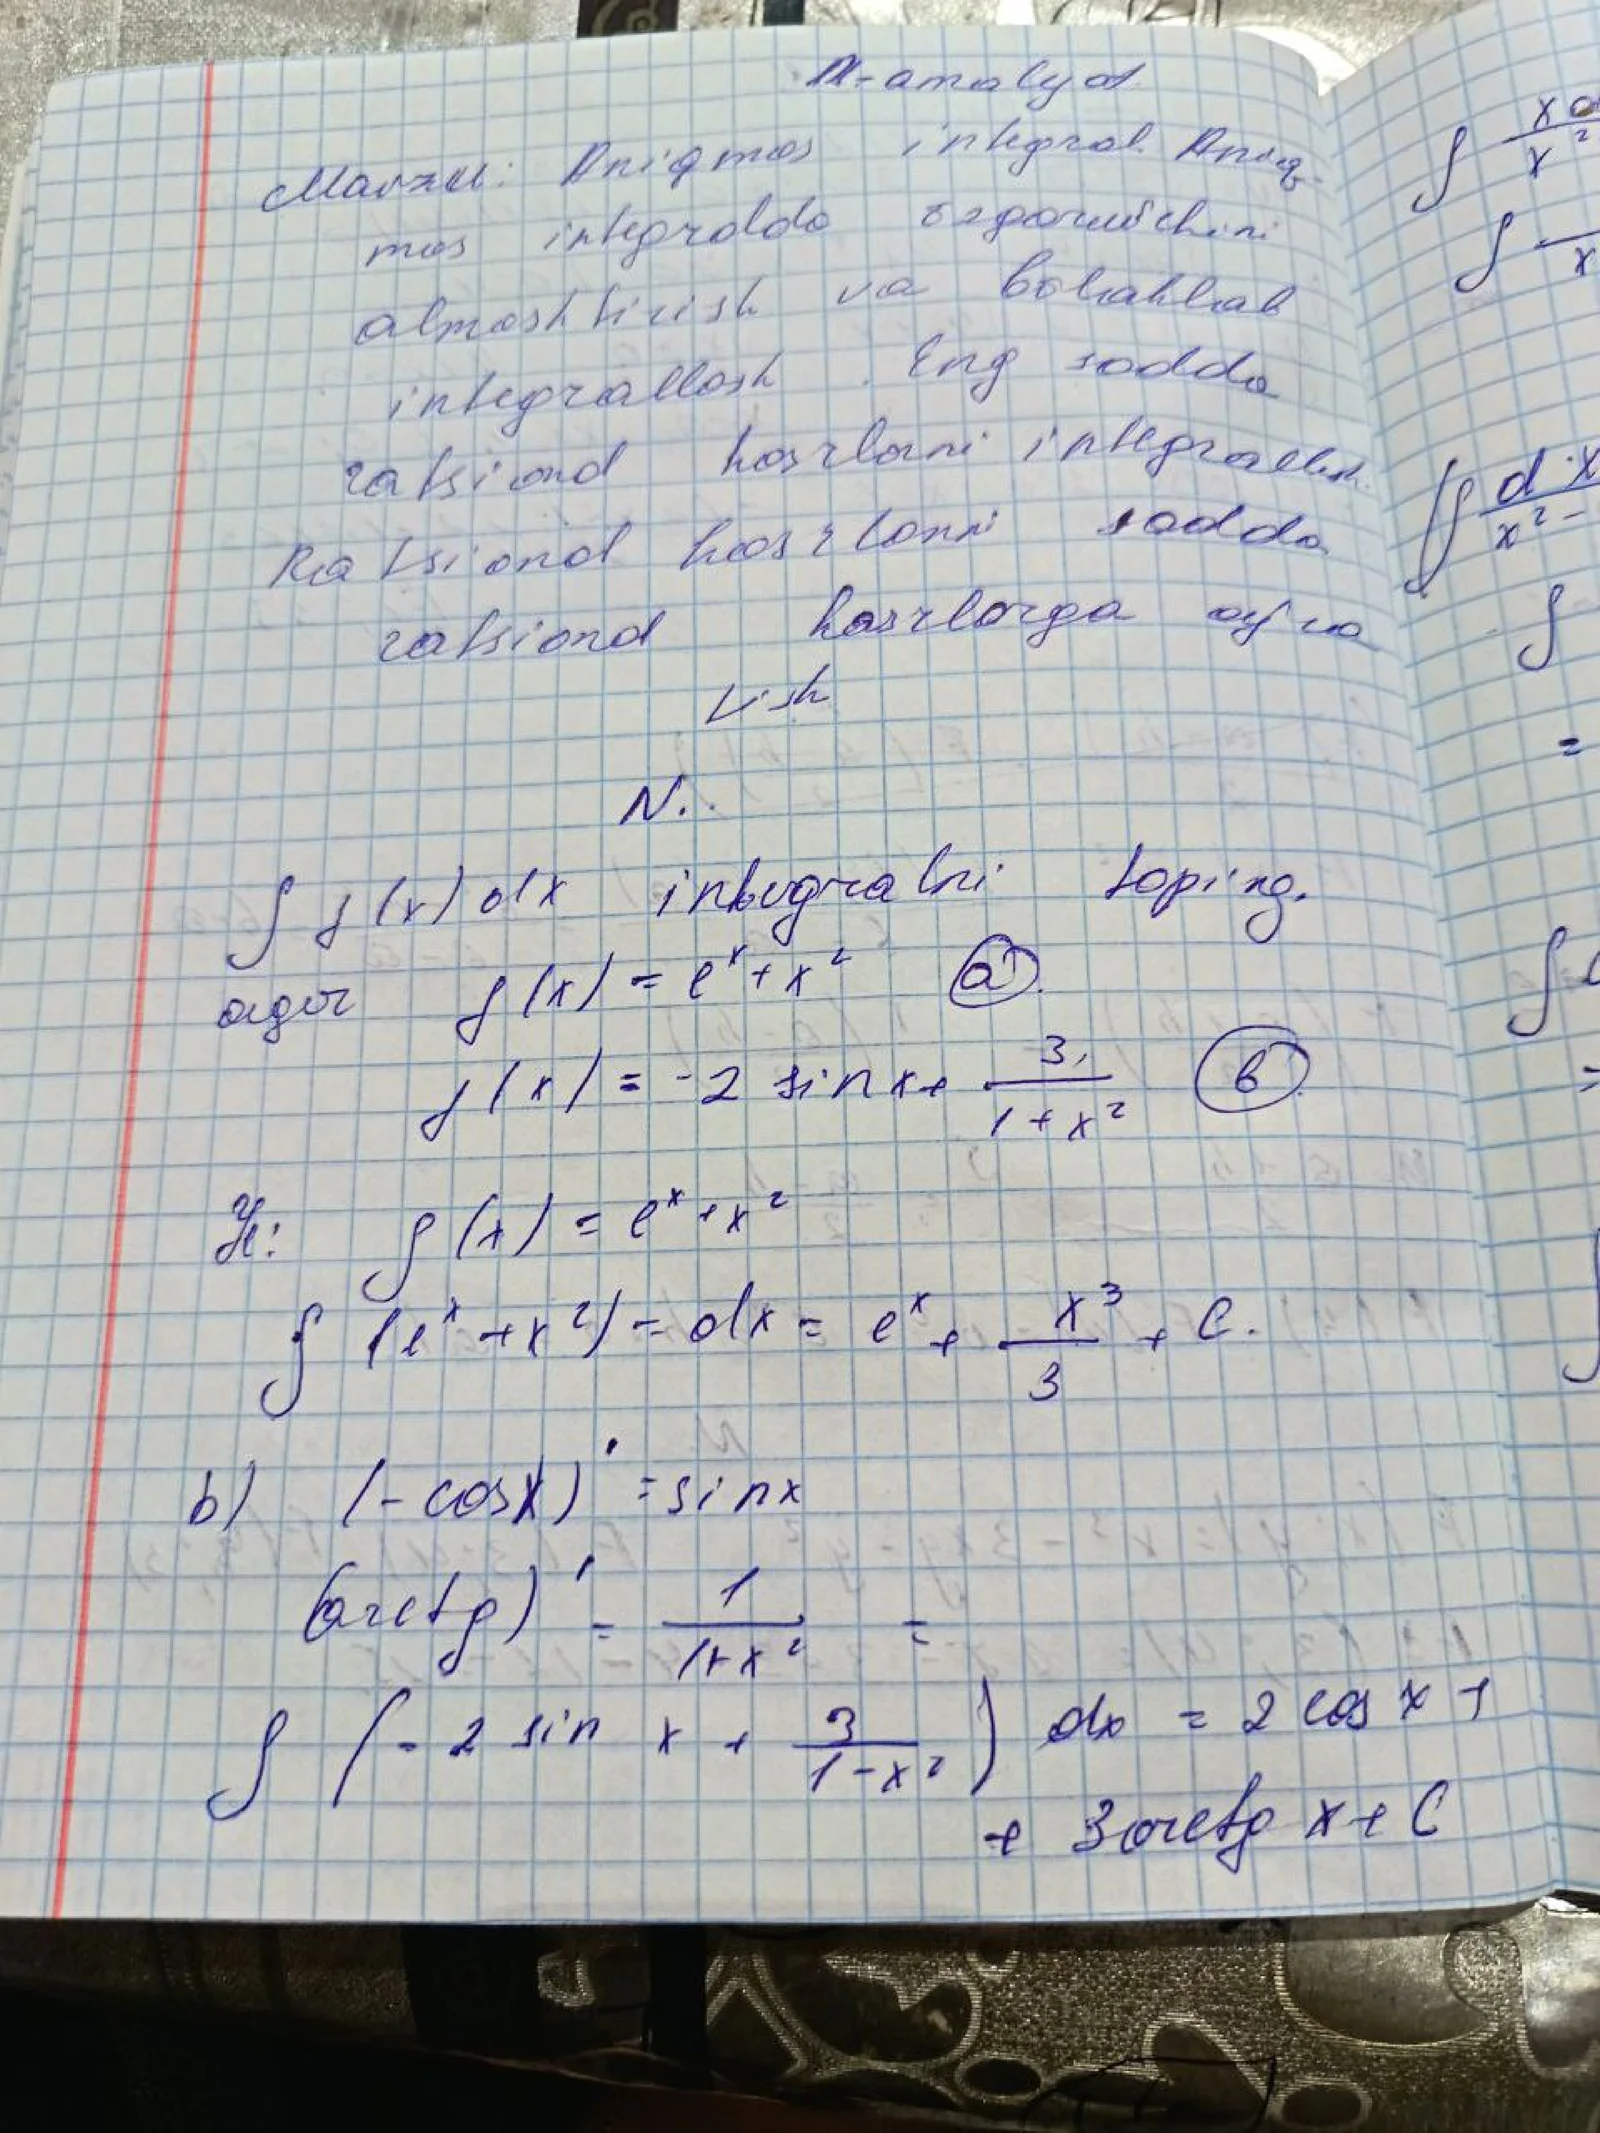 Mavzu: Aniqmas integral. Aniq-
mas integralda ozgaruvchini
almashtirish va bolaklab
integrallash. Eng sodda
ratsional kasrlarni integrallash.
Ratsional kasrlarni sodda
ratsional kasrlarga ajra
tish
N.
∫ f(x) dx integralni toping.
agar f(x) = e^x + x^2 (a)
f(x) = -2 sin x + 3/(1+x^2) (b)
f(x) = e^x + x^2
∫ (e^x + x^2) - dx = e^x + x^3/3 + C.
b) (-cos x)' = sin x
(arctg)' = 1/(1+x^2) =
∫ (-2 sin x + 3/(1-x^2)) dx = 2 cos x +
+ 3 arctg x + C
x^2
∫
x
∫ dx/(x^2 -
∫
=
∫
∫